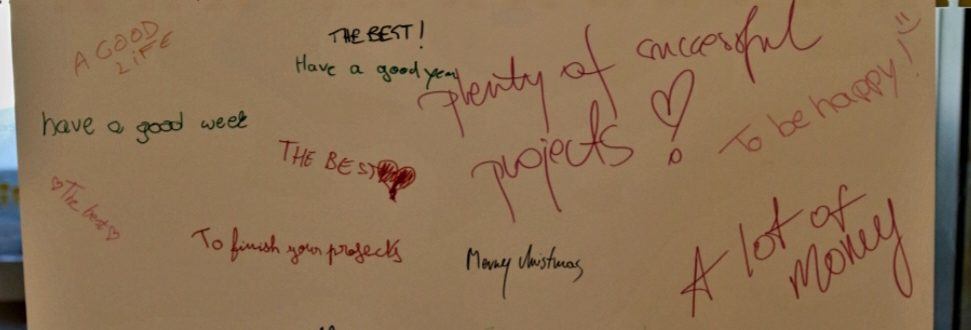 A GOOD
LIFE
THE BEST!
Have a good year
plenty of successful
projects!
To be happy!
have a good week
THE BEST
The best
To finish your projects
Merry Christmas
A lot of
money